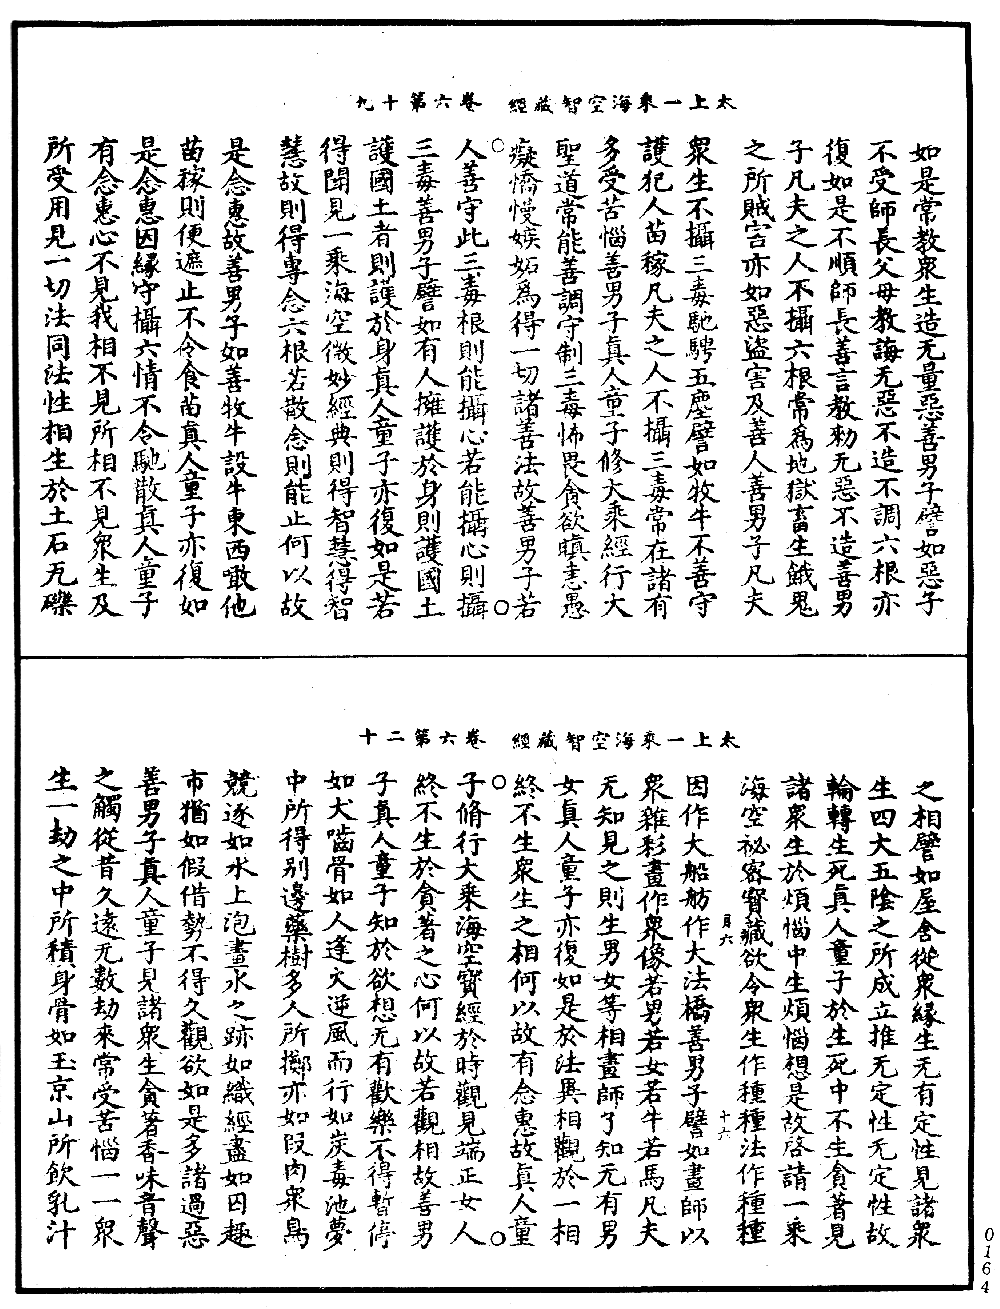 太上一乘海空智藏經　卷六第十九
如是常教衆生造无量惡善男子譬如惡子
不受師長父母教誨无惡不造不調六根亦
復如是不順師長善言教勑无惡不造善男
子凡夫之人不攝六根常爲地獄畜生餓鬼
之所賊害亦如惡盜害及善人善男子凡夫
衆生不攝三毒馳騁五塵譬如牧牛不善守
護犯人苗稼凡夫之人不攝三毒常在諸有
多受苦惱善男子真人童子修大乘經行大
聖道常能善調守制三毒怖畏貪欲瞋恚愚
癡憍慢嫉妬爲得一切諸善法故善男子若
人善守此三毒根則能攝心若能攝心則攝
三毒善男子譬如有人擁護於身則護國土
護國土者則護於身真人童子亦復如是若
得聞見一乘海空微妙經典則得智慧得智
慧故則得專念六根若散念則能止何以故
是念惠故善男子如善牧牛設牛東西噉他
苗稼則便遮止不令食苗真人童子亦復如
是念惠因緣守攝六情不令馳散真人童子
有念惠心不見我相不見所相不見衆生及
所受用見一切法同法性相生於土石瓦礫
太上一乘海空智藏經　卷六第二十
之相譬如屋舍從衆緣生无有定性見諸衆
生四大五陰之所成立推无定性无定性故
輪轉生死真人童子於生死中不生貪著見
諸衆生於煩惱中生煩惱想是故啓請一乘
海空祕密寶藏欲令衆生作種種法作種種
因作大船舫作大法橋善男子譬如畫師以
衆雜彩畫作衆像若男若女若牛若馬凡夫
无知見之則生男女等相畫師了知无有男
女真人童子亦復如是於法異相觀於一相
終不生衆生之相何以故有念惠故真人童
子脩行大乘海空寶經於時觀見端正女人
終不生於貪著之心何以故若觀相故善男
子真人童子知於欲想无有歡樂不得暫停
如犬嚙骨如人逢火逆風而行如炭毒池夢
中所得别邊藥樹多人所擲亦如段肉衆鳥
競逐如水上泡畫水之跡如織經盡如囚趣
市猶如假借勢不得久觀欲如是多諸過惡
善男子真人童子見諸衆生貪著香味音聲
之觸從昔久遠无數劫來常受苦惱一一衆
生一劫之中所積身骨如玉京山所飲乳汁
十六
0164